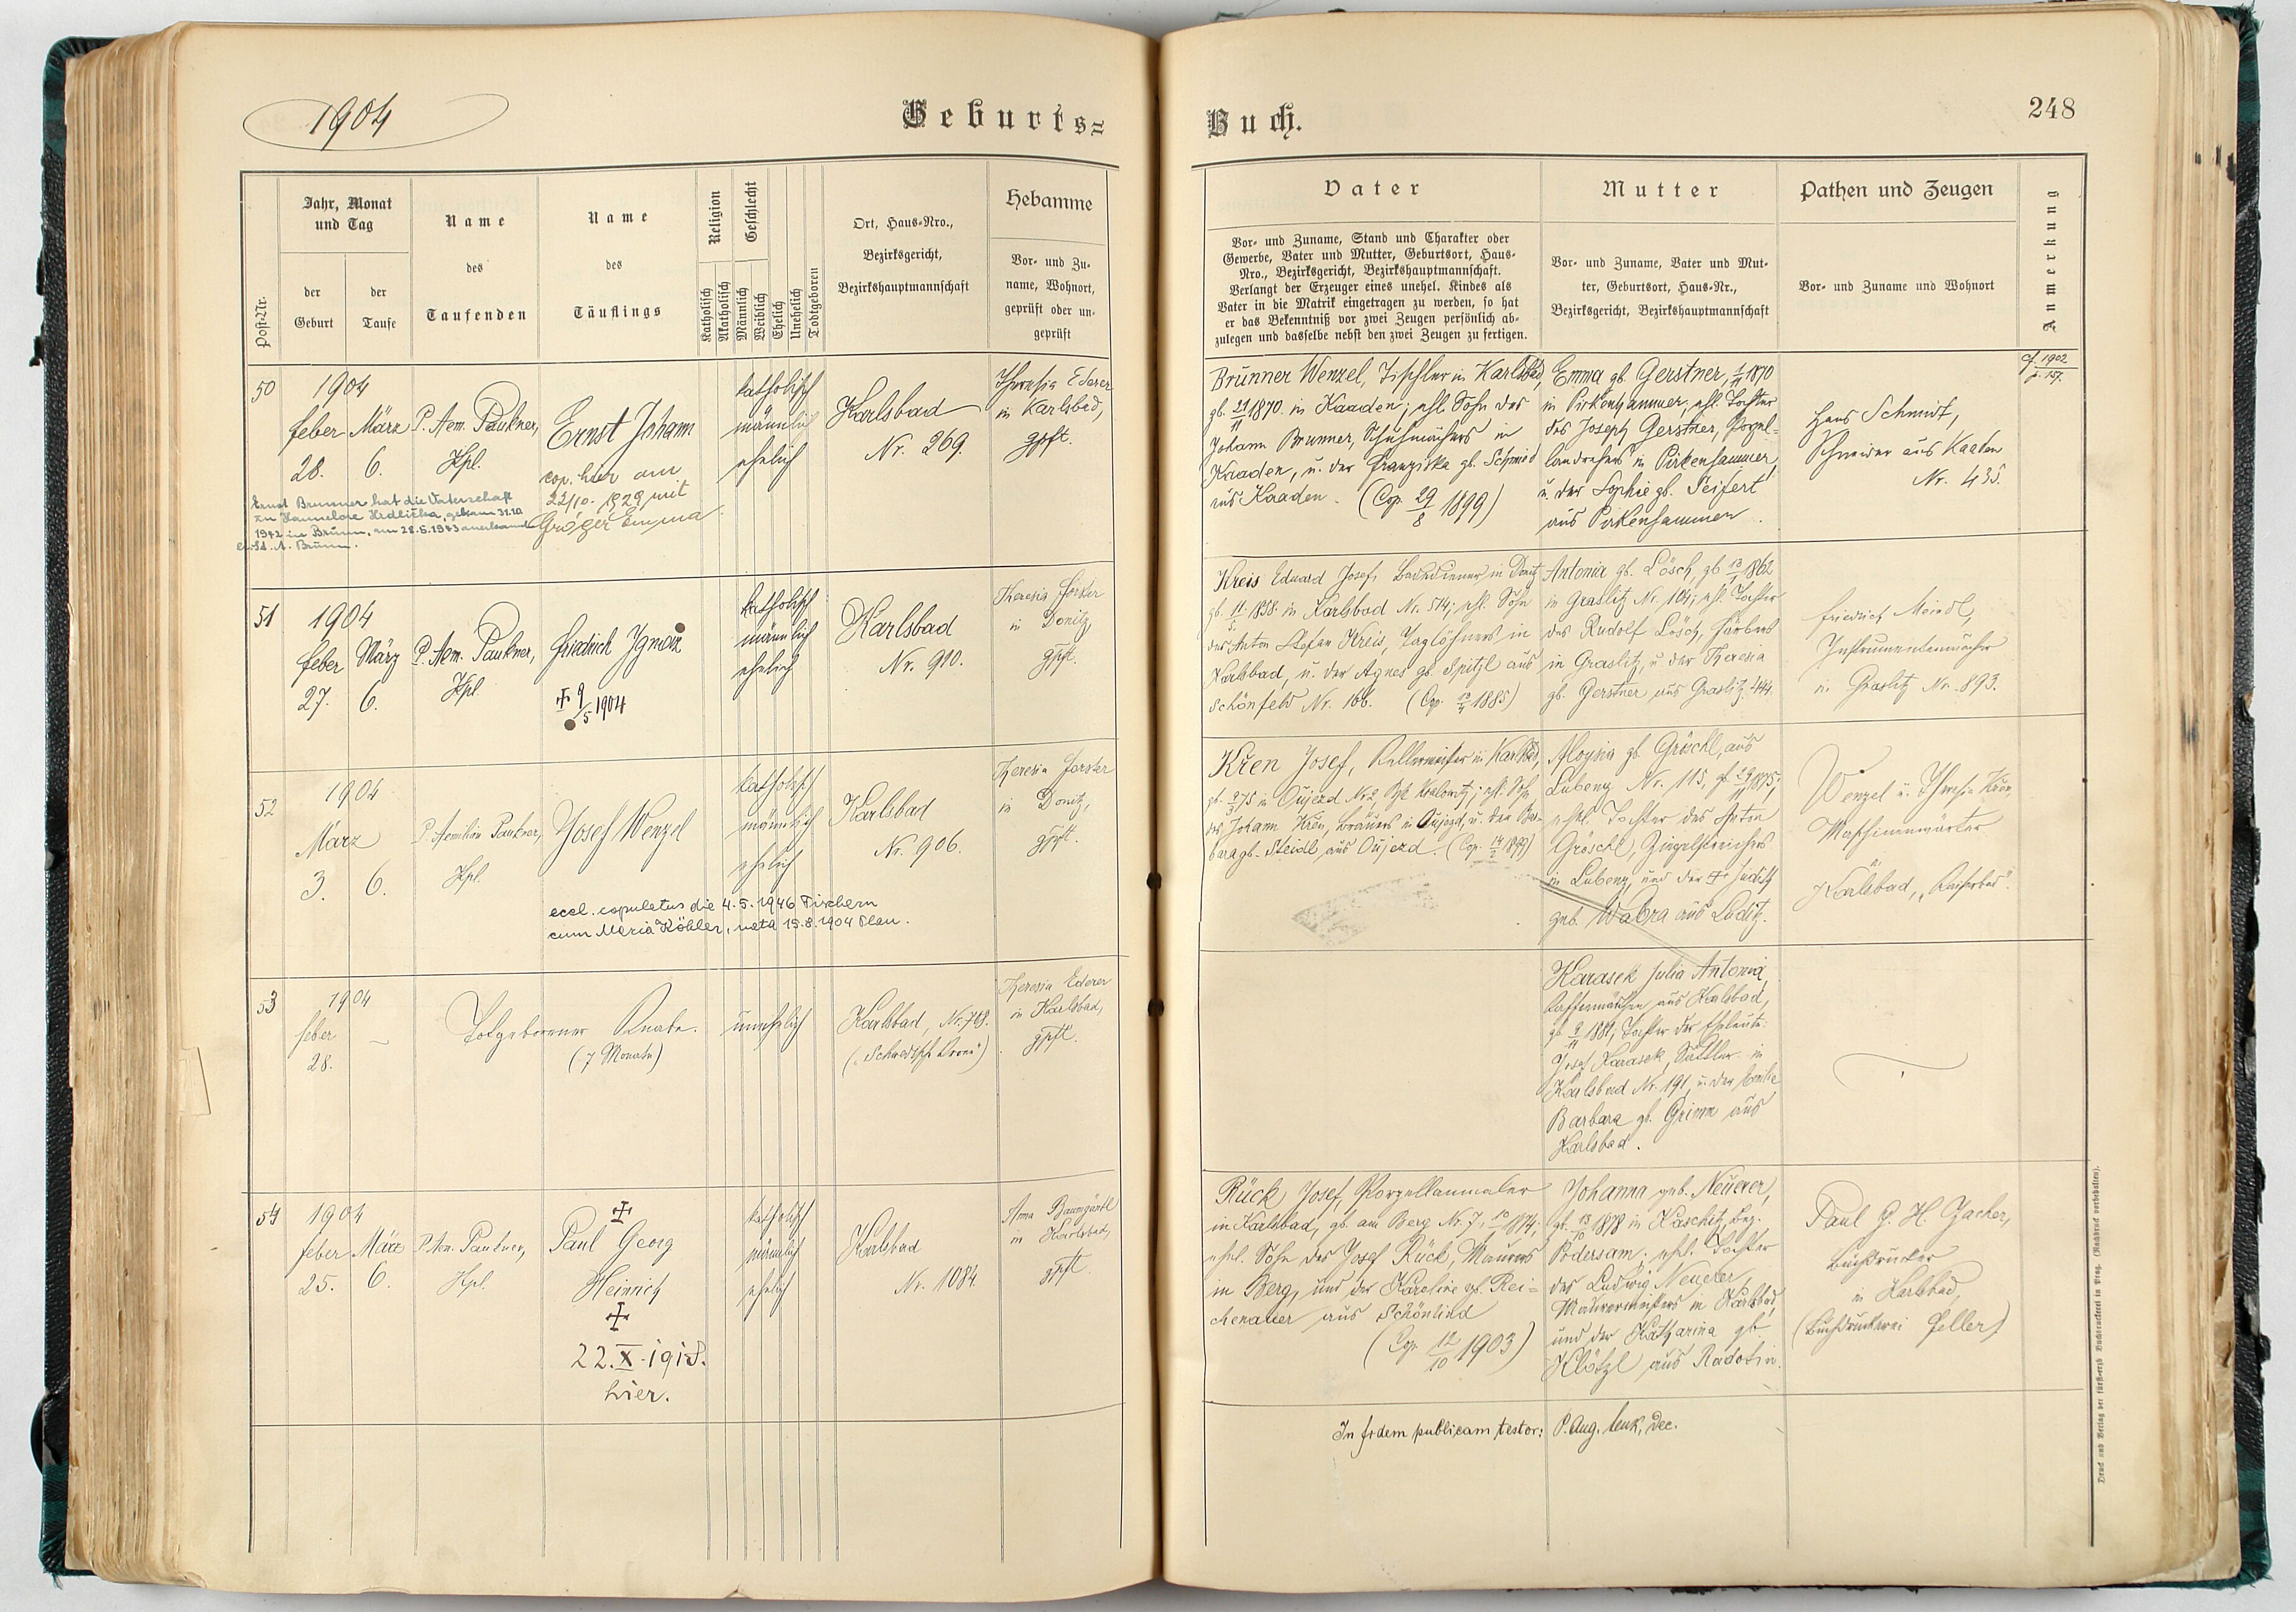 1904
Geburts=
Buch.
248
Post-Nr.
Jahr, Monat
und Tag
der
Geburt
der
Taufe
Name
des
Taufenden
Name
des
Täuflings
Religion
Katholisch
Akatholisch
Geschlecht
Männlich
Weiblich
Ehelich
Unehelich
Todtgeboren
Ort, Haus-Nro.,
Bezirksgericht,
Bezirkshauptmannschaft
Hebamme
Vor- und Zu-
name, Wohnort,
geprüft oder un-
geprüft
Vater
Vor- und Zuname, Stand und Charakter oder
Gewerbe, Vater und Mutter, Geburtsort, Haus-
Nro., Bezirksgericht, Bezirkshauptmannschaft.
Verlangt der Erzeuger eines unehel. Kindes als
Vater in die Matrik eingetragen zu werden, so hat
er das Bekenntniß vor zwei Zeugen persönlich ab-
zulegen und dasselbe nebst den zwei Zeugen zu fertigen.
Mutter
Vor- und Zuname, Vater und Mut-
ter, Geburtsort, Haus-Nr.,
Bezirksgericht, Bezirkshauptmannschaft
Pathen und Zeugen
Vor- und Zuname und Wohnort
Anmerkung
50
1904
feber März
28. 6.
P. Aem. Paukner,
Kpl.
Ernst Johann
cop. hier am
22/10. 1929 mit
Gröger Emma
Ernst Brunner hat die Vaterschaft
zu Hannelore Hrdlička, geb. am 31.10
1942 in Brünn, am 28.6.1943 anerkannt
Brünn.
katholisch
männlich
ehelich
Karlsbad
Nr. 269.
Theresia Ederer
in Karlsbad,
gpft.
Brunner Wenzel, Tischler in Karlsbad,
gb. 29/11 1870 in Kaaden; ehl. Sohn des
Johann Brunner, Schuhmachers in
Kaaden, u. der Franziska gb. Schmid
aus Kaaden. (Cop. 29/8 1899)
Emma gb. Gerstner, 1870
in Pirkenhammer, ehl. Tochter
des Joseph Gerstner, Porzel-
landrehers in Pirkenhammer,
u. der Sophie gb. Seifert
aus Pirkenhammer.
Hans Schmidt,
Schneider aus Kaaden
Nr. 435.
cf. 1902
p. 157.
51
1904
feber März
27. 6.
P. Aem. Paukner,
Kpl.
Friedrich Ignaz
✠ 9/5 1904
katholisch
männlich
ehelich
Karlsbad
Nr. 910.
Theresia Forster
in Donitz,
gpft.
Kreis Eduard Josef, Badediener in Donitz
1858 in Karlsbad Nr. 514; ehl. Sohn
des Anton Stefan Kreis, Taglöhners in
Karlsbad, u. der Agnes gb. Spitzl aus
Schönfeld Nr. 166. (Cop. 1885)
Antonia gb. Lösch, gb. 1862
in Graslitz Nr. 104; ehl. Tochter
des Rudolf Lösch, Färbers
in Graslitz, u. der Theresia
gb. Gerstner aus Graslitz 444.
Friedrich Meindl,
Instrumentenmacher
in Graslitz Nr. 893.
52
1904
März
3. 6.
P. Aemilian Paukner,
Kpl.
Josef Wenzel
eccl. copulatus die 4.5.1946 Fischern
cum Maria Köhler, nata 15.8.1904 Plan.
katholisch
männlich
ehelich
Karlsbad
Nr. 906.
Theresia Forster
in Donitz,
gpft.
Křen Josef, Kellermeister in Karlsbad,
75 in Oujezd Nr. 2, ehl. Sohn
des Johann Křen, Brauers in Oujezd, u. der Bar-
bara gb. Steidl aus Oujezd. (Cop. 1899)
Aloysia gb. Gröschl, aus
Lubenz Nr. 115, 1875;
ehl. Tochter des Anton
Gröschl, Ziegelstreichers
in Lubenz, und der ✠ Judith
geb. Wabra aus Luditz.
Wenzel u. Theresia Křen,
Maschinenwärter
Karlsbad, „Kaiserbad".
53
1904
feber
28.
–
Totgeborener Knabe.
(7 Monate)
unehelich
Karlsbad, Nr. 768.
Theresia Ederer
in Karlsbad,
gpft.
Karasek Julia Antonia
aus Karlsbad,
Tochter der Eheleute:
Josef Karasek, Sattler in
Karlsbad Nr. 191, u. der
Barbara gb. Grimm aus
Karlsbad.
54
1904
feber März
25. 6.
P. Aem. Paukner,
Kpl.
✠
Paul Georg
Heinrich
✠
22.X.1918.
hier.
katholisch
männlich
ehelich
Karlsbad
Nr. 1084
Anna Baumgärtl
in Karlsbad,
gpft.
Rück Josef, Porzellanmaler
in Karlsbad, gb. am Berg Nr. 7, 1874;
ehel. Sohn des Josef Rück, Maurers
in Berg, und der Karoline gb. Rei-
chenauer aus Schönlind
(Cop. 12/10 1903)
Johanna geb. Neuerer,
gb. 13/10 1878 in Kaschitz, Bez.
Podersam; ehl. Tochter
des Ludwig Neuerer
Maurermeisters in Karlsbad,
und der Katharina gb.
Klötzl aus Radotin.
Paul G. H. Zacher,
Buchdrucker
in Karlsbad,
(Buchdruckerei Feller)
In fidem publicam testor: P. Aug. Lenk, Dec.
Druck und Verlag der fürst-erzb. Buchdruckerei in Prag. (Nachdruck vorbehalten).